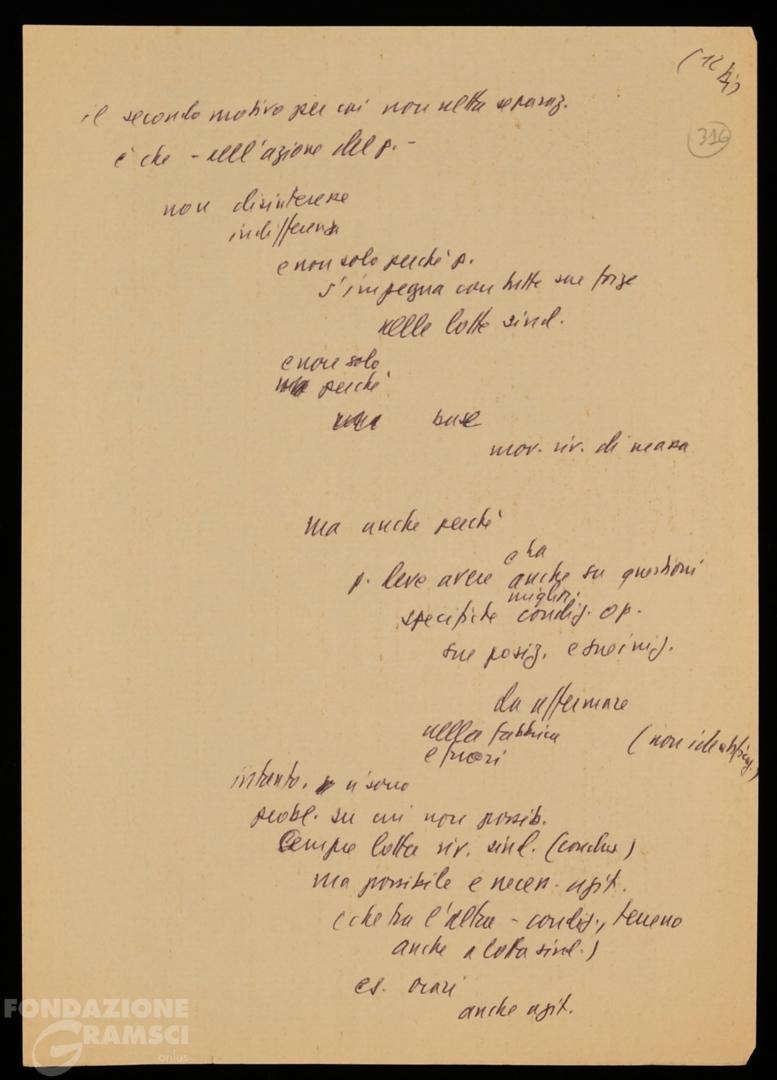 (12 bis)
316
il secondo motivo per cui non netta separaz.
è che - nell'azione del p. -
non disinteresse
indifferenza
e non solo perché p.
s'impegna con tutte sue forze
nelle lotte sind.
e non solo
perché
base
mov. riv. di massa
ma anche perché
e ha
p. deve avere anche su questioni
miglior.
specifiche condiz. op.
sue posiz. e sue iniz.
da affermare
nella fabbrica
e fuori
(non identificaz.)
intanto, vi sono
probl. su cui non possib.
sempre lotta riv. sind. (conclus)
ma possibile e necess. agit.
(che tra l'altro - condiz., terreno
anche a lotta sind.)
es. orari
anche agit.
FONDAZIONE
GRAMSCI
onlus